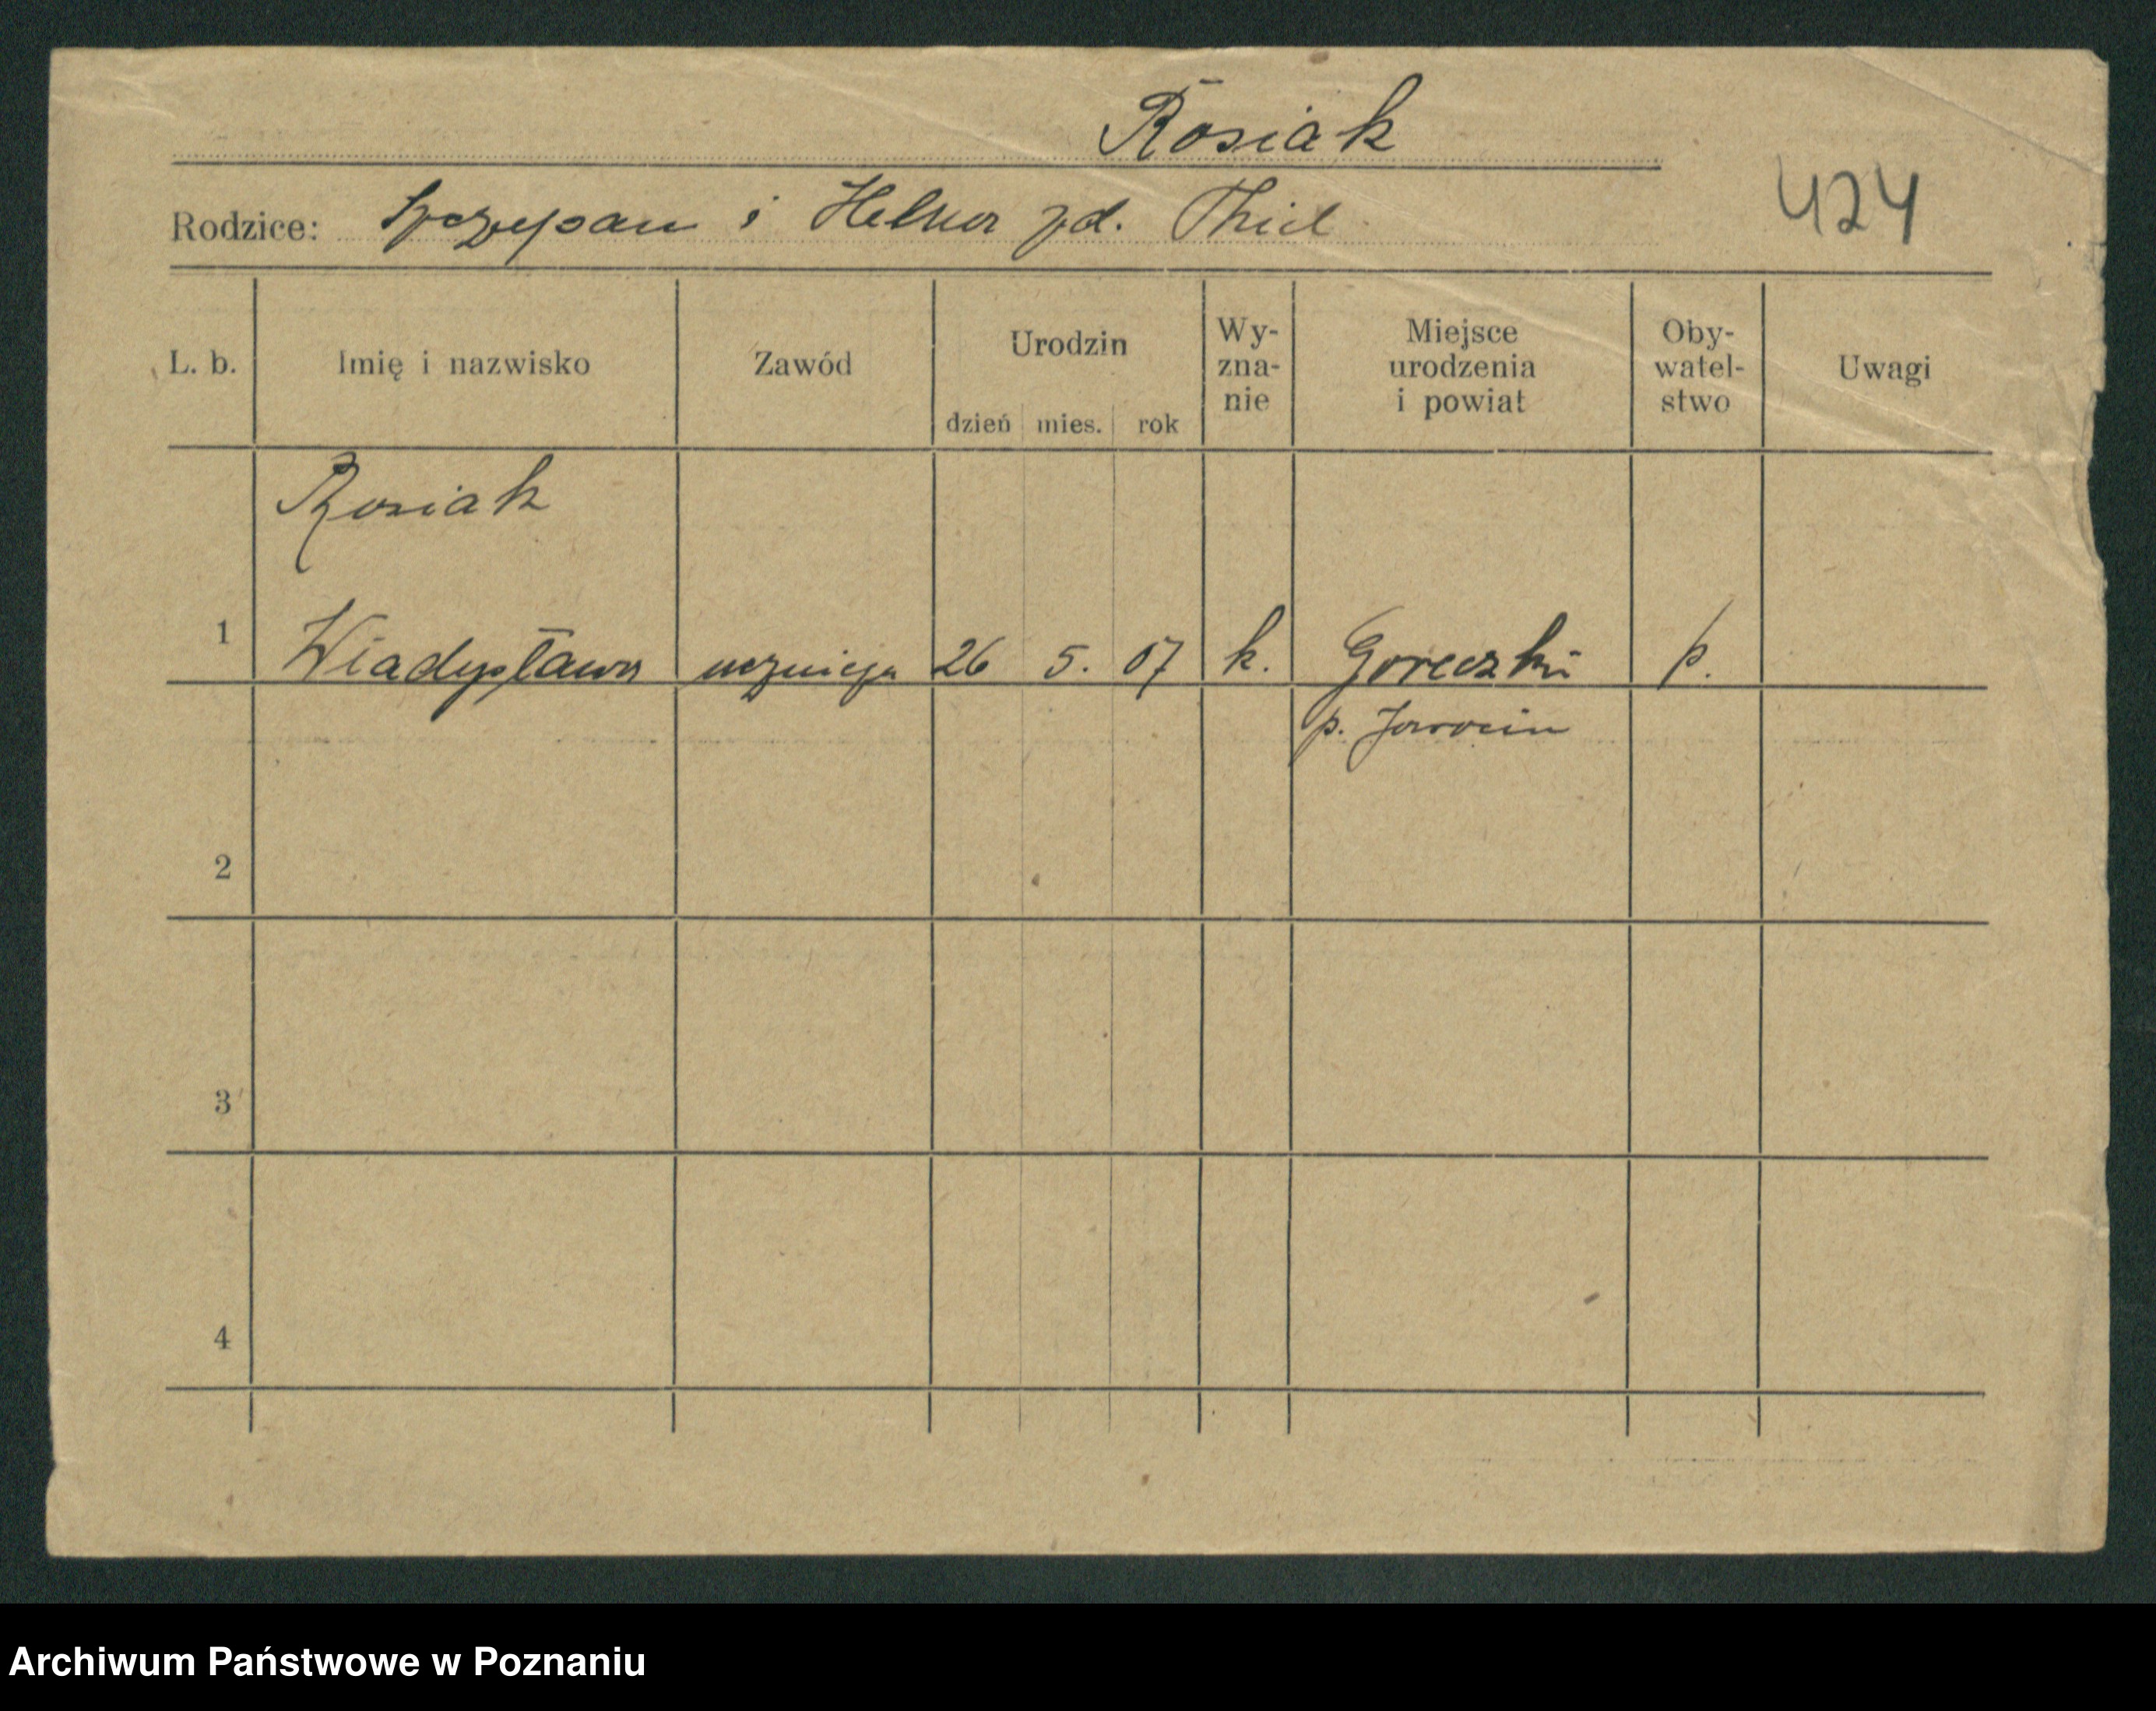 Rosiak
Rodzice: Szczepan i Helena zd. Thiel
424
L. b. Imię i nazwisko Zawód Urodzin dzień mies. rok Wy-zna-nie Miejsce urodzenia i powiat Oby-watel-stwo Uwagi
Rosiak
1 Władysława uczenica 26 5. 07 k. Goreczki p.
p. Jarocin
2
3
4
Archiwum Państwowe w Poznaniu